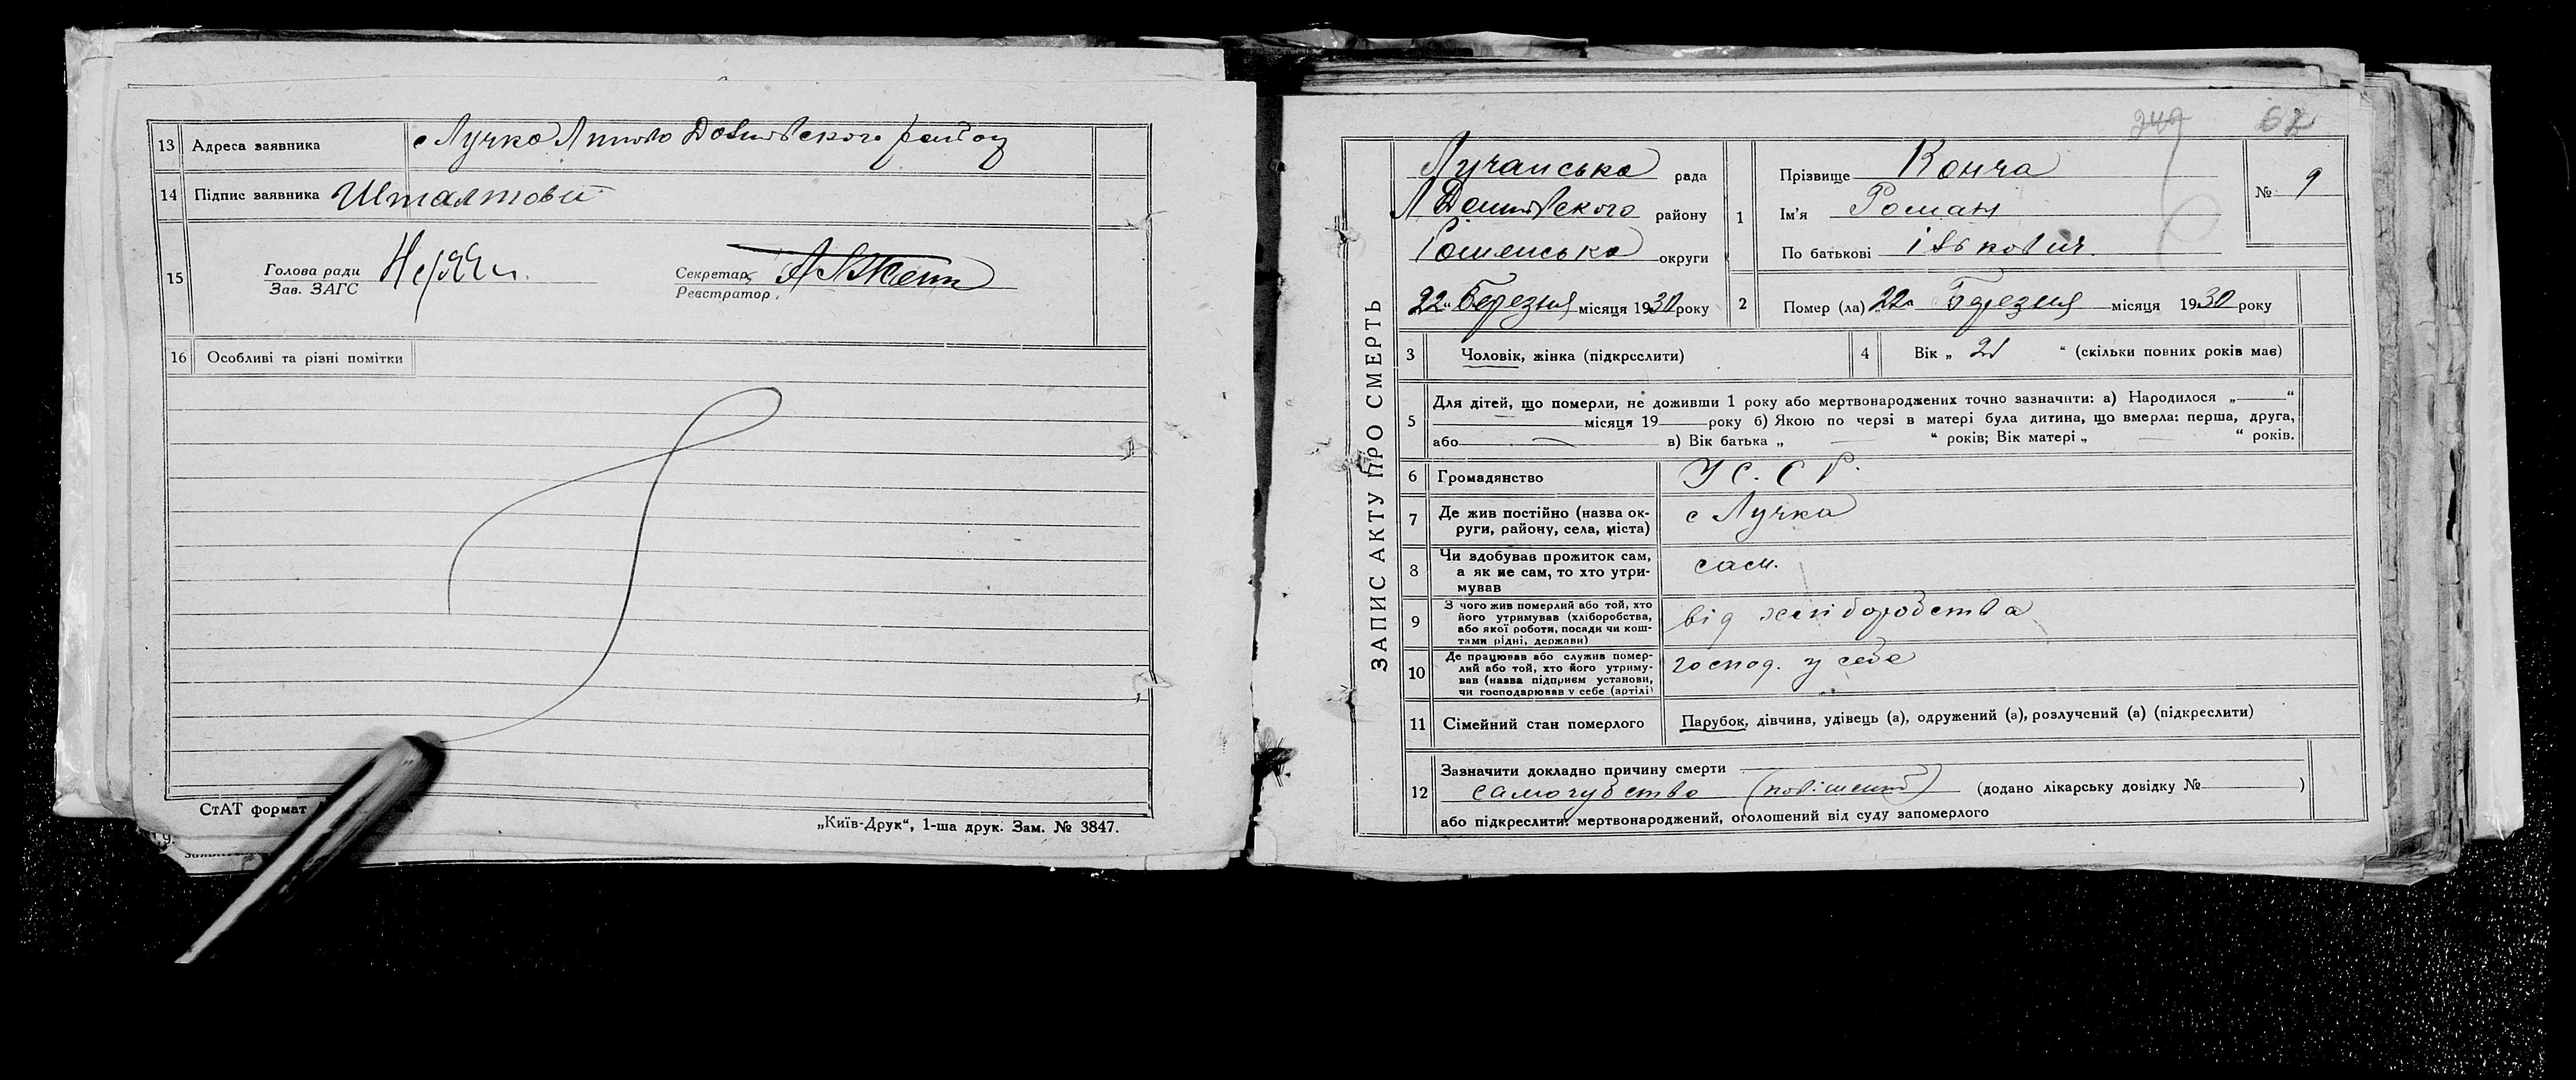 13 Адреса заявника с Лучка Липово Долинського району
14 Підпис заявника Шталтовий
15 Голова ради
Зав. ЗАГС
Секретар
Реєстратор
16 Особливі та різні помітки
СтАТ формат
„Київ-Друк“, 1-ша друк. Зам. № 3847.
249 62
ЗАПИС АКТУ ПРО СМЕРТЬ
Лучанська рада
Л Долинського району
Роменська округи
22 " Березня місяця 1930 року
1 Прізвище Конча
Ім'я Роман
По батькові
№ 9
2 Помер (ла) „22" Березня місяця 1930 року
3 Чоловік, жінка (підкреслити)
4 Вік „ 21 “ (скільки повних років має)
5 Для дітей, що померли, не доживши 1 року або мертвонароджених точно зазначити: а) Народилося „ “
місяця 19 року б) Якою по черзі в матері була дитина, що вмерла: перша, друга,
або в) Вік батька „ “ років; Вік матері „ “ років.
6 Громадянство У С. С Р.
7 Де жив постійно (назва ок-
руги, району, села, міста) с Лучка
8 Чи здобував прожиток сам,
а як не сам, то хто утри-
мував сам.
9 З чого жив померлий або той, хто
його утримував (хліборобства,
або якої роботи, посади чи кош-
тами рідні, держави) від хліборобства
10 Де працював або служив помер-
лий або той, хто його утриму-
вав (назва підприєм установи,
чи господарював у себе (артілі) господ. у себе
11 Сімейний стан померлого Парубок, дівчина, удівець (а), одружений (а), розлучений (а) (підкреслити)
12 Зазначити докладно причину смерти
самогубство (повішений) (додано лікарську довідку № )
або підкреслити: мертвонароджений, оголошений від суду запомерлого